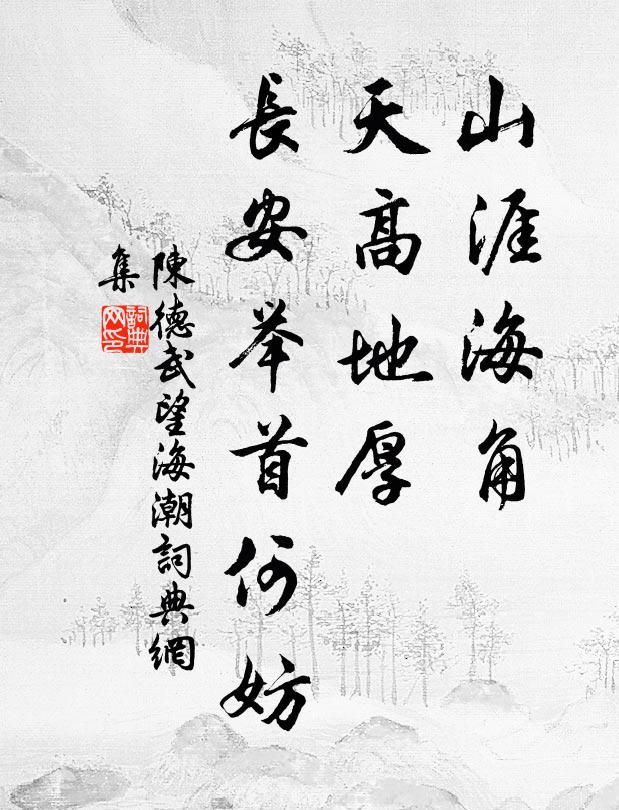 山涯海角
天高地厚
長安举首何妨
陳德武望海潮詞典網
集
詞典网印